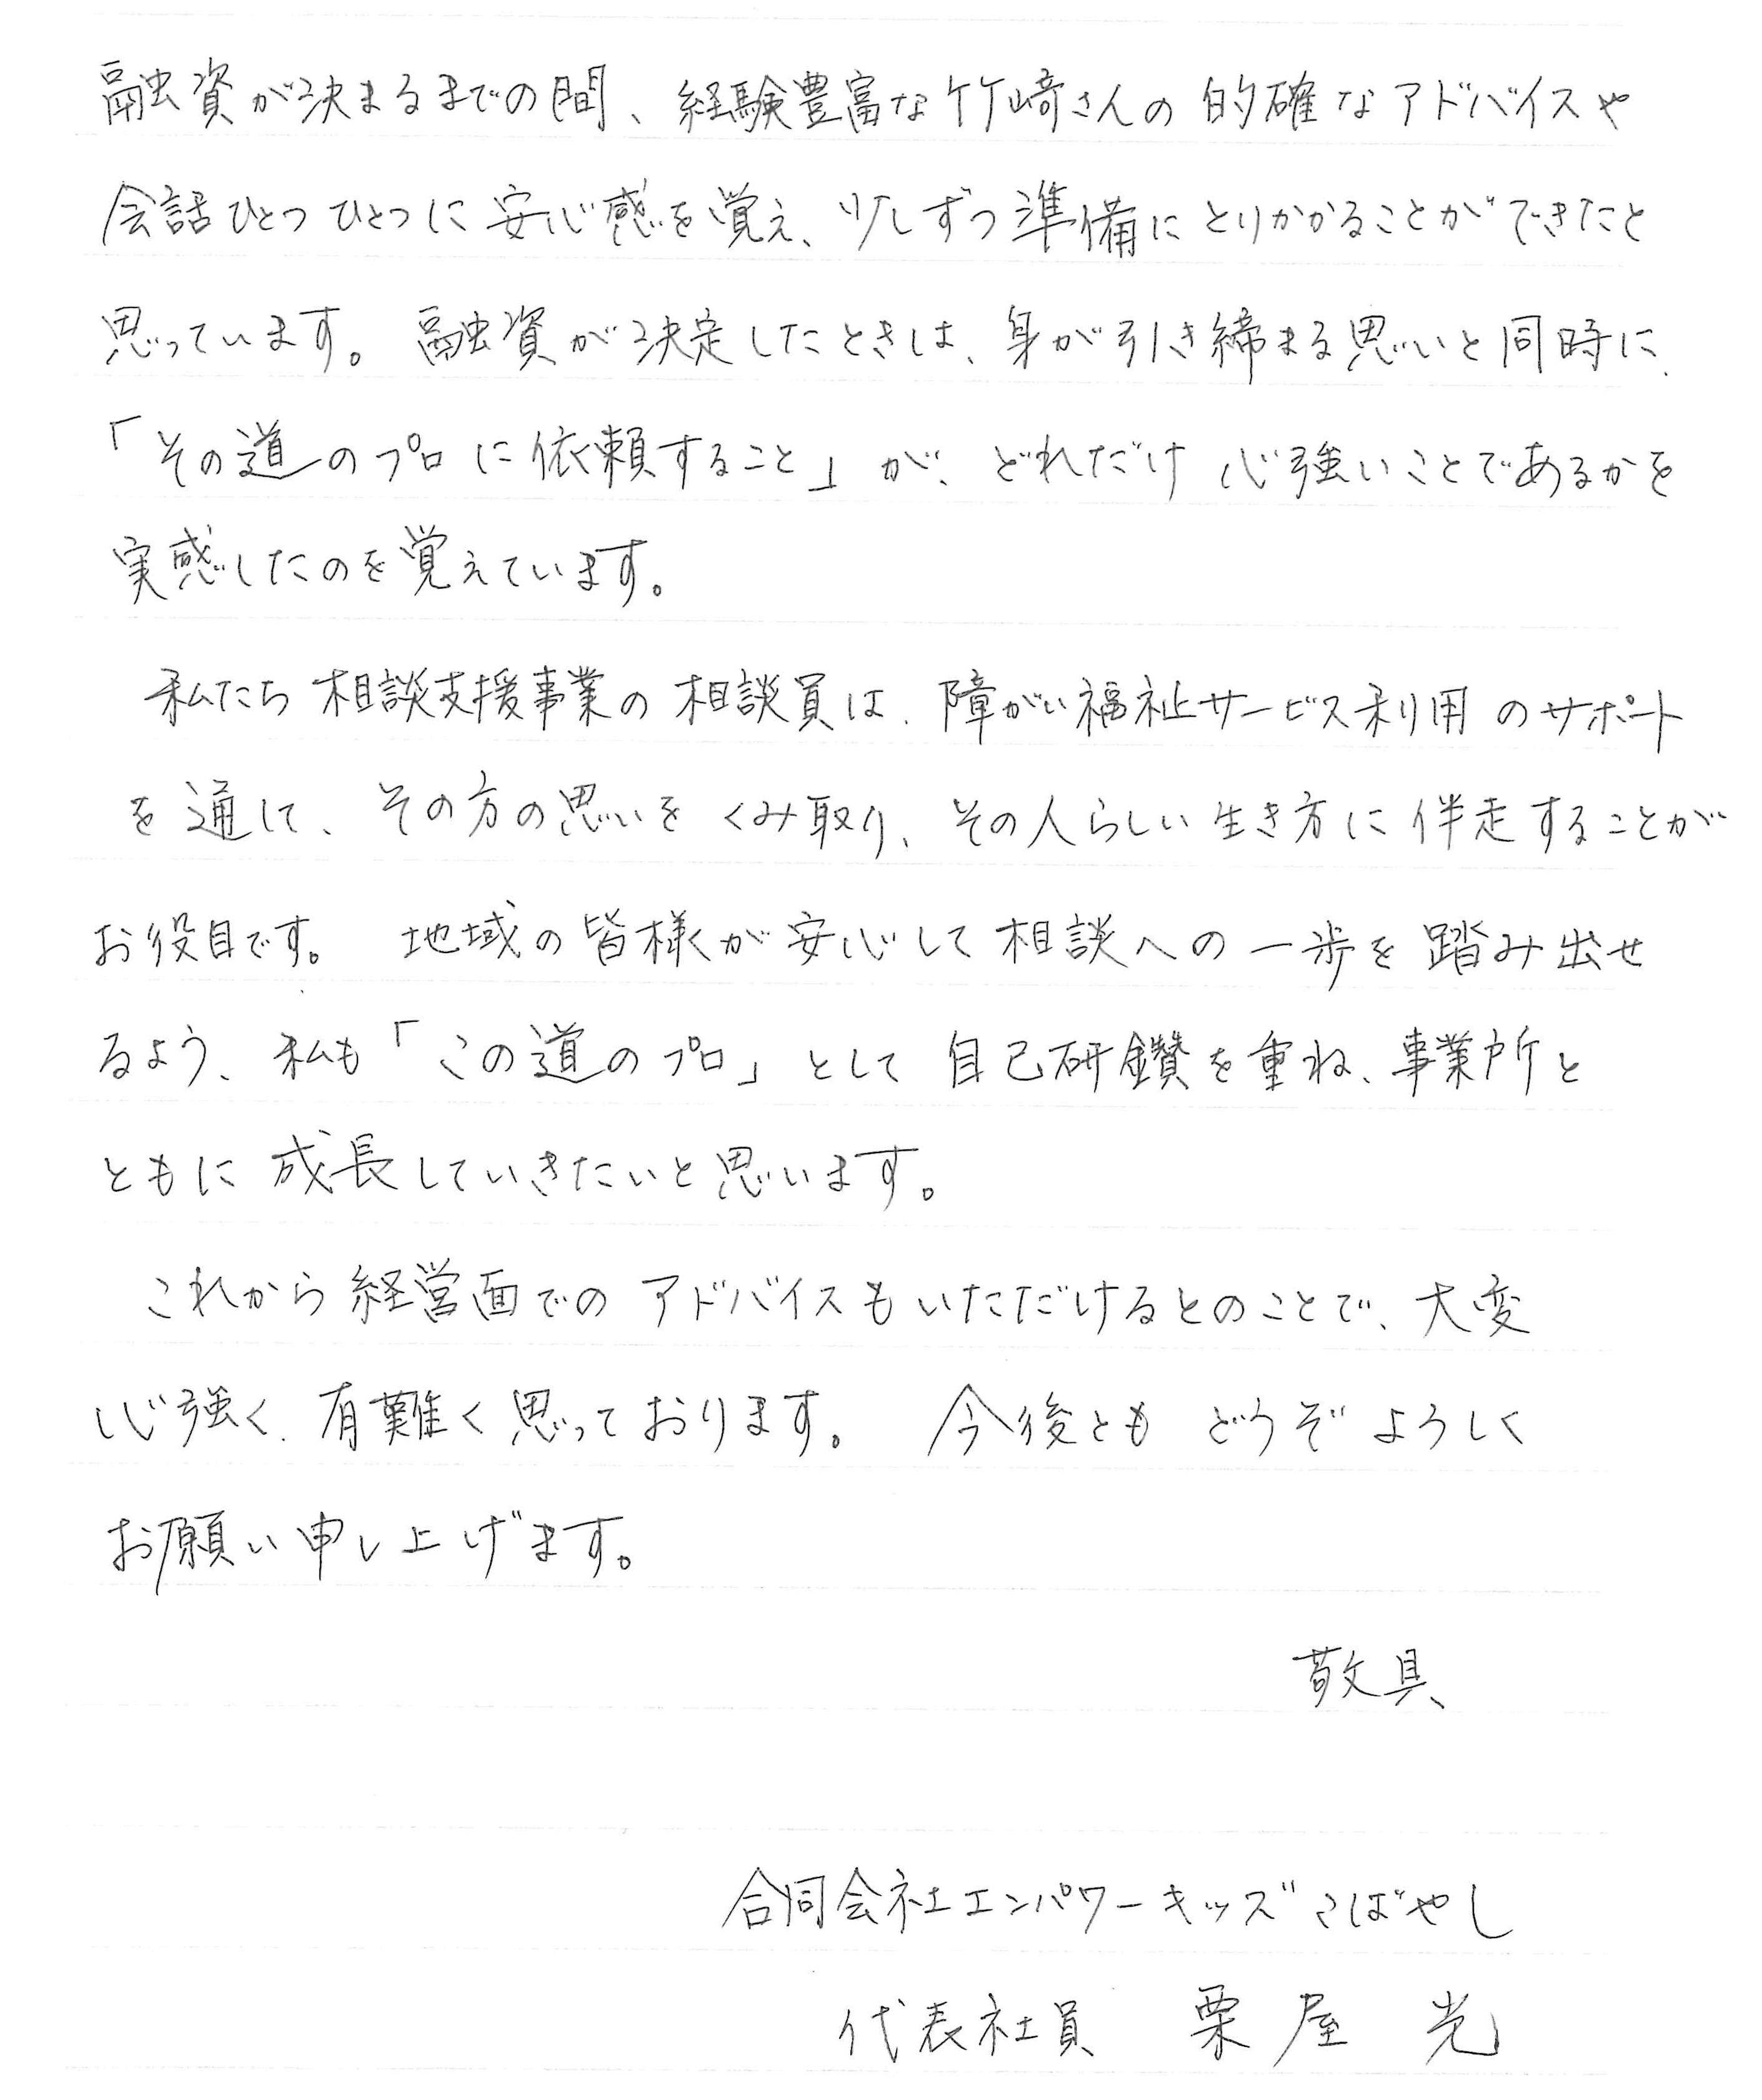 融資が決まるまでの間、経験豊富な竹﨑さんの的確なアドバイスや
会話ひとつひとつに安心感を覚え、少しずつ準備にとりかかることができたと
思っています。融資が決定したときは、身が引き締まる思いと同時に、
「その道のプロに依頼すること」が、どれだけ心強いことであるかを
実感したのを覚えています。
私たち相談支援事業の相談員は、障がい福祉サービス利用のサポート
を通して、その方の思いをくみ取り、その人らしい生き方に伴走することが
お役目です。地域の皆様が安心して相談への一歩を踏み出せ
るよう、私も「この道のプロ」として自己研鑽を重ね、事業所と
ともに成長していきたいと思います。
これから経営面でのアドバイスもいただけるとのことで、大変
心強く、有難く思っております。今後ともどうぞよろしく
お願い申し上げます。
敬具
合同会社エンパワーキッズこばやし
代表社員 栗屋 光